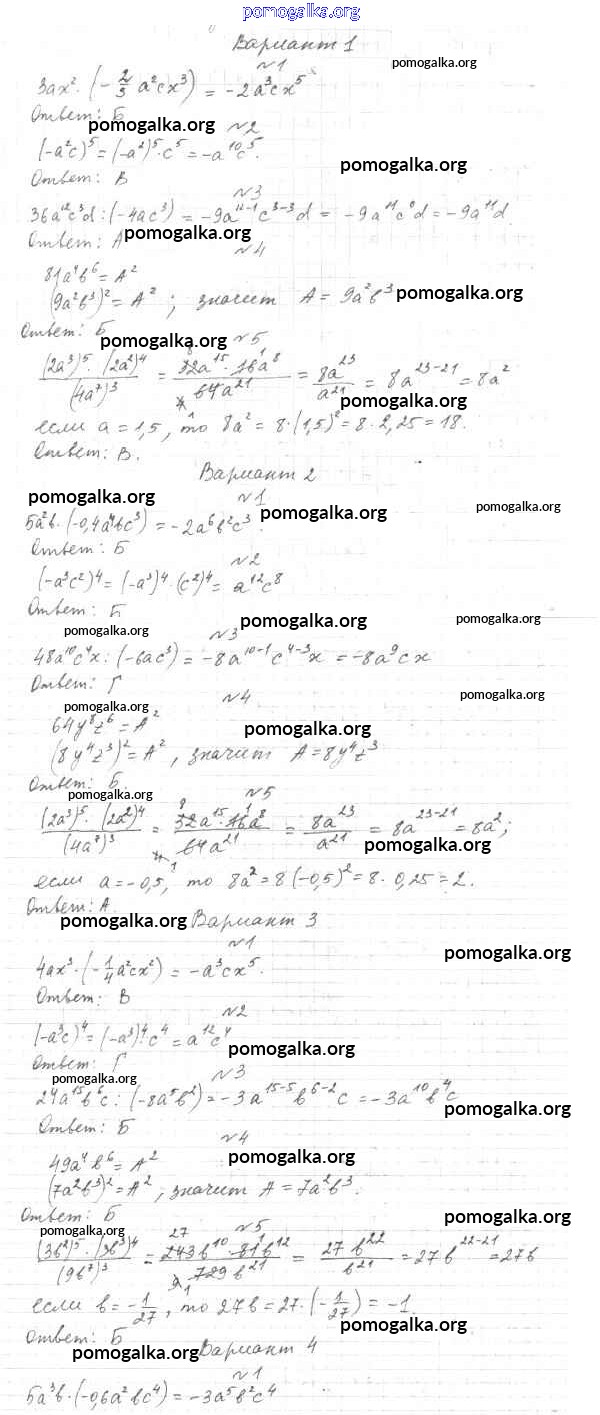 pomogalka.org
Вариант 1
pomogalka.org
№1
3ax² · (-2/3 a²cx³) = -2a³cx⁵
Ответ: Б
pomogalka.org
№2
(-a²c)⁵ = (-a²)⁵ · c⁵ = -a¹⁰c⁵.
pomogalka.org
Ответ: В
№3
36a¹²c³d : (-4ac³) = -9a¹²⁻¹c³⁻³d = -9a¹¹c⁰d = -9a¹¹d
Ответ: А
pomogalka.org
№4
81a⁴b⁶ = A²
(9a²b³)² = A² ; значит A = 9a²b³
pomogalka.org
Ответ: Б
pomogalka.org
№5
(2a³)⁵ · (2a²)⁴ / (4a⁷)³ = 32a¹⁵ · 16a⁸ / 64a²¹ = 8a²³ / a²¹ = 8a²³⁻²¹ = 8a²
pomogalka.org
если a = 1,5, то 8a² = 8 · (1,5)² = 8 · 2,25 = 18.
Ответ: В.
Вариант 2
pomogalka.org
№1
pomogalka.org
pomogalka.org
5a²b · (-0,4a⁴bc³) = -2a⁶b²c³.
Ответ: Б
№2
(-a³c²)⁴ = (-a³)⁴ · (c²)⁴ = a¹²c⁸
Ответ: Б
pomogalka.org
pomogalka.org
pomogalka.org
№3
48a¹⁰c⁴x : (-6ac³) = -8a¹⁰⁻¹c⁴⁻³x = -8a⁹cx
Ответ: Г
pomogalka.org
№4
pomogalka.org
64y⁸z⁶ = A²
pomogalka.org
(8y⁴z³)² = A², значит A = 8y⁴z³
Ответ: Б.
pomogalka.org
№5
(2a³)⁵ · (2a²)⁴ / (4a⁷)³ = 32a¹⁵ · 16a⁸ / 64a²¹ = 8a²³ / a²¹ = 8a²³⁻²¹ = 8a²;
pomogalka.org
если a = -0,5, то 8a² = 8(-0,5)² = 8 · 0,25 = 2.
Ответ: А.
pomogalka.org
Вариант 3
№1
pomogalka.org
4ax³ · (-1/4 a²cx²) = -a³cx⁵.
Ответ: В
№2
(-a³c)⁴ = (-a³)⁴ · c⁴ = a¹²c⁴
pomogalka.org
Ответ: Г
pomogalka.org
№3
24a¹⁵b⁶c : (-8a⁵b²) = -3a¹⁵⁻⁵b⁶⁻²c = -3a¹⁰b⁴c
pomogalka.org
Ответ: Б
№4
49a⁴b⁶ = A²
pomogalka.org
(7a²b³)² = A², значит A = 7a²b³.
Ответ: Б
pomogalka.org
pomogalka.org
№5
(3b²)⁵ · (3b³)⁴ / (9b⁷)³ = 243b¹⁰ · 81b¹² / 729b²¹ = 27b²² / b²¹ = 27b²²⁻²¹ = 27b
если b = -1/27, то 27b = 27 · (-1/27) = -1.
pomogalka.org
Ответ: Б
pomogalka.org
Вариант 4
№1
5a³b · (-0,6a²bc⁴) = -3a⁵b²c⁴